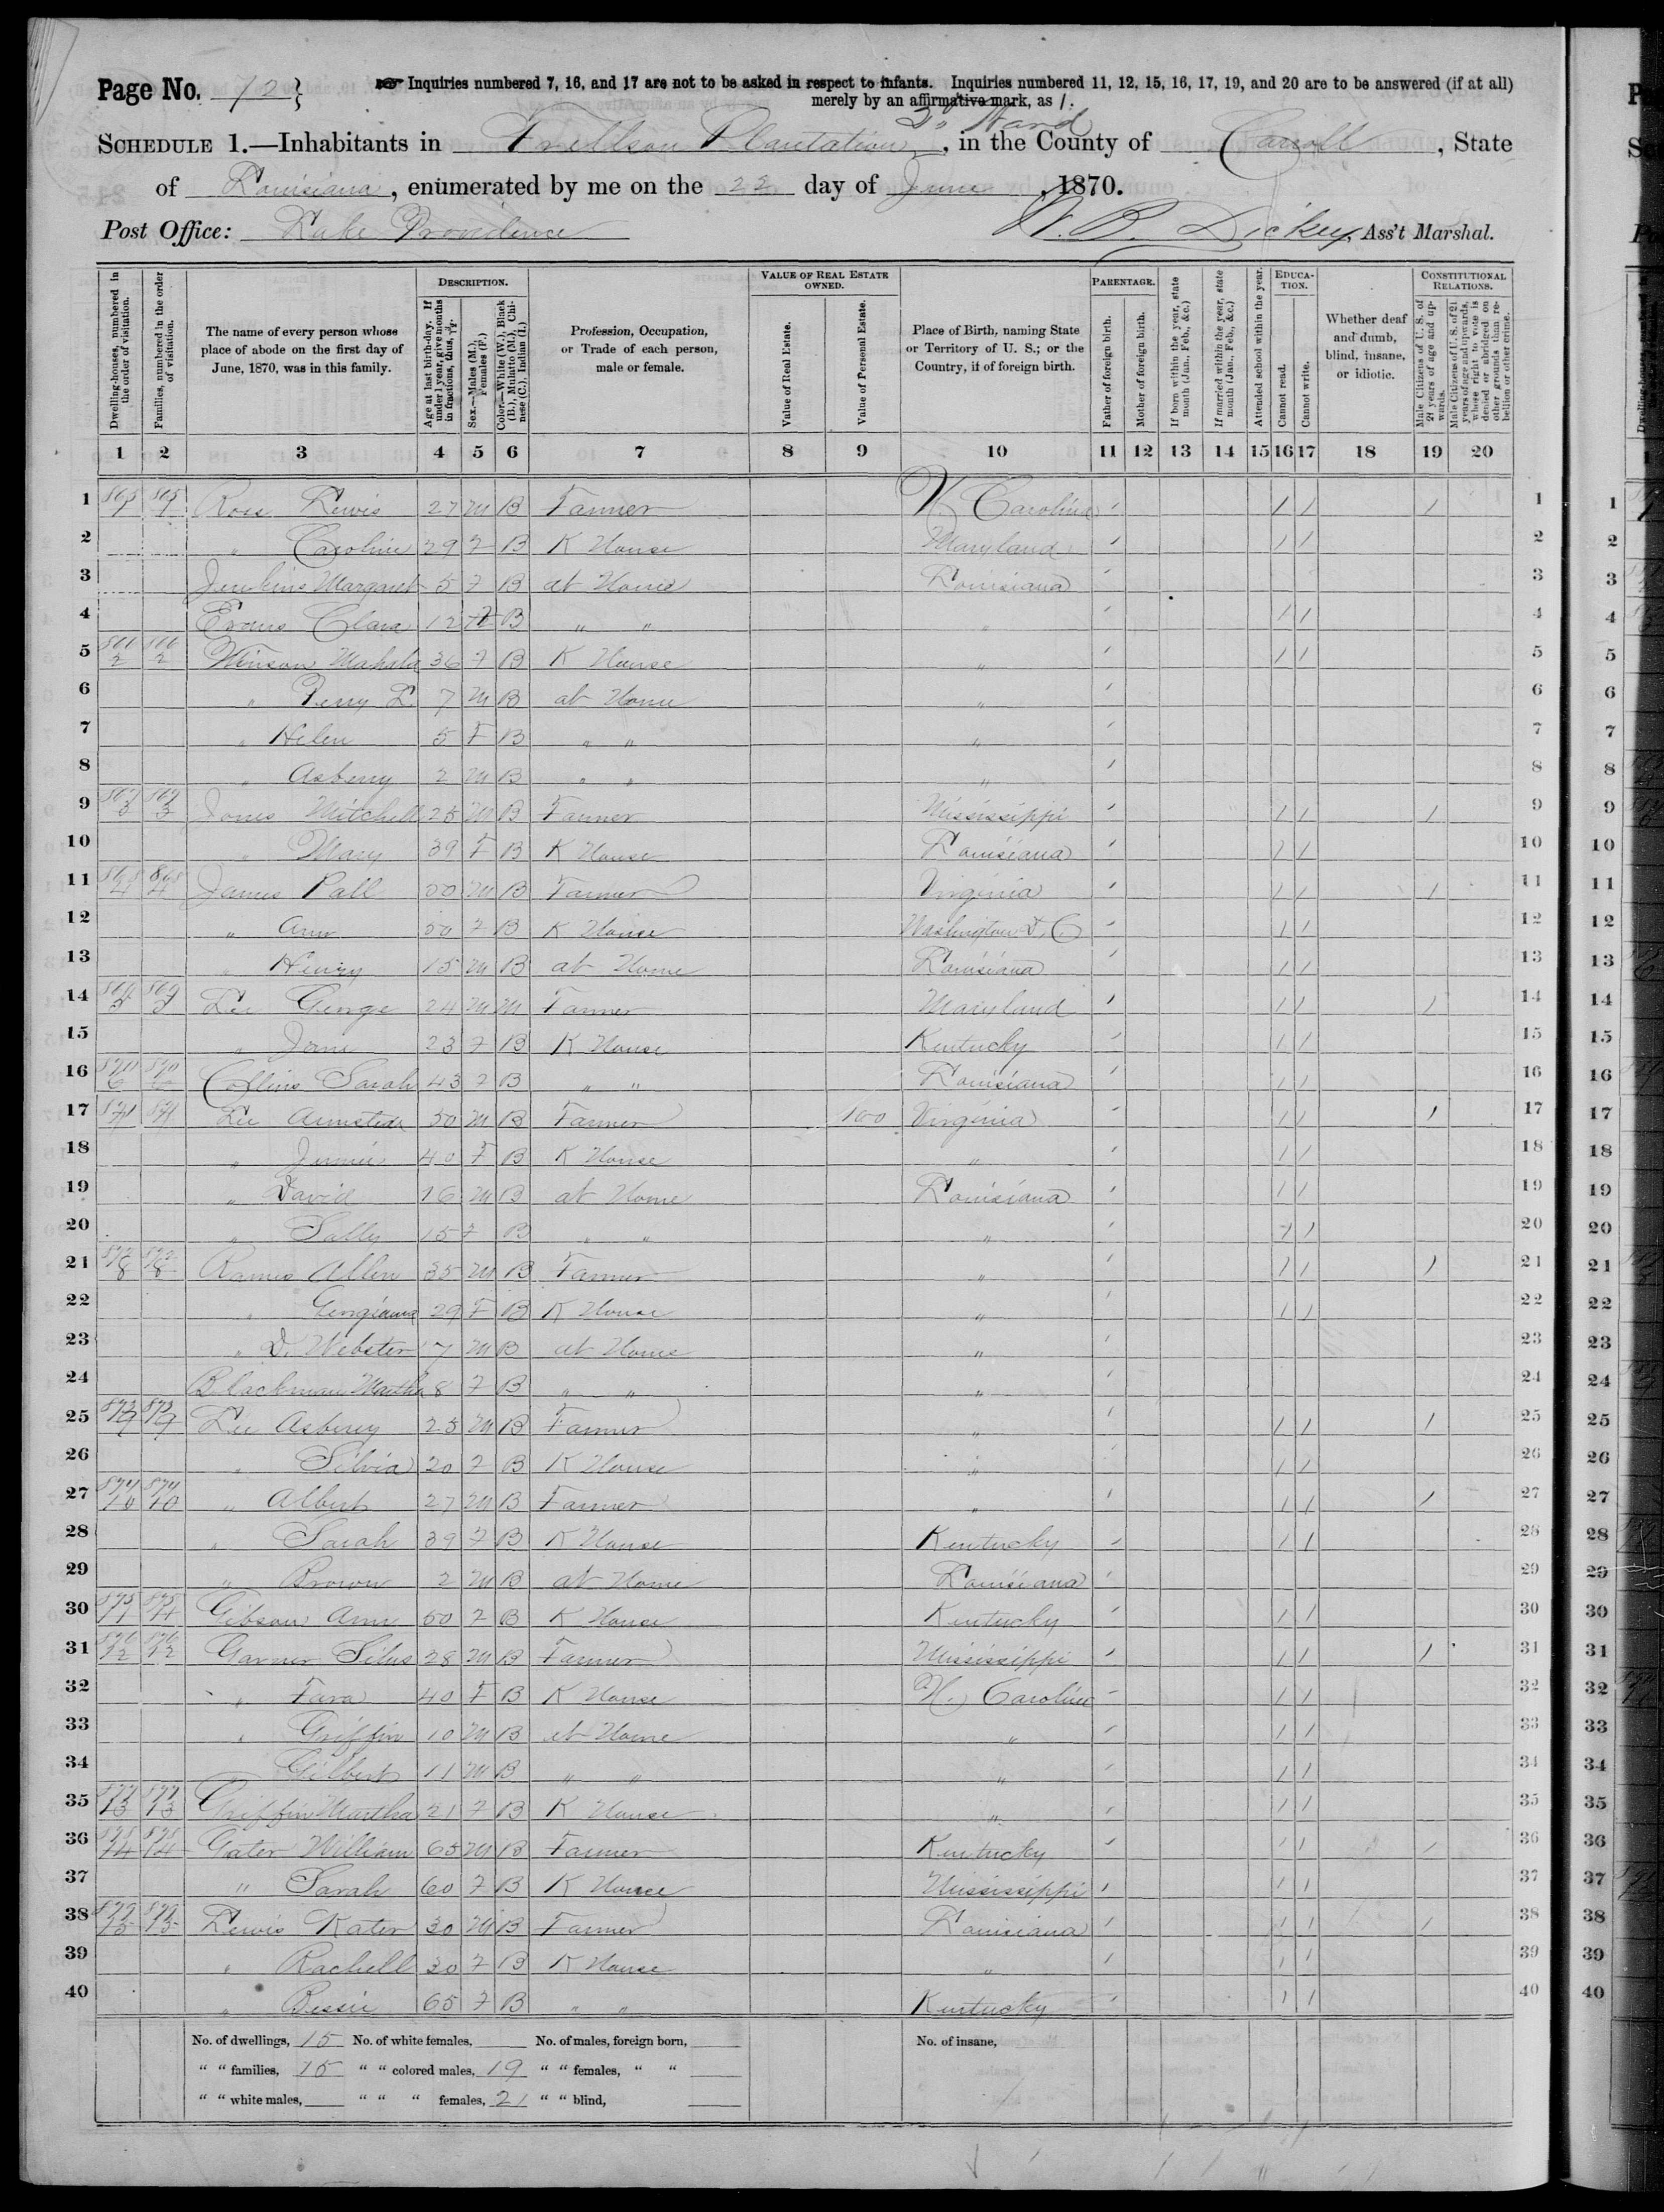 Page No. 72
☞ Inquiries numbered 7, 16, and 17 are not to be asked in respect to infants. Inquiries numbered 11, 12, 15, 16, 17, 19, and 20 are to be answered (if at all)
merely by an affirmative mark, as /.
Ward
SCHEDULE 1.—Inhabitants in Plantation, in the County of Carroll, State
of Louisiana, enumerated by me on the 22 day of June, 1870.
Post Office: Lake Providence W. B. Dickey, Ass't Marshal.
Dwelling-houses, numbered in the order of visitation.
Families, numbered in the order of visitation.
The name of every person whose place of abode on the first day of June, 1870, was in this family.
DESCRIPTION.
Age at last birth-day. If under 1 year, give months in fractions, thus,
Sex.—Males (M.), Females (F.)
Color.—White (W.), Black (B.), Mulatto (M.), Chinese (C.), Indian (I.)
Profession, Occupation, or Trade of each person, male or female.
VALUE OF REAL ESTATE OWNED.
Value of Real Estate.
Value of Personal Estate.
Place of Birth, naming State or Territory of U. S.; or the Country, if of foreign birth.
PARENTAGE.
Father of foreign birth.
Mother of foreign birth.
If born within the year, state month (Jan., Feb., &c.)
If married within the year, state month (Jan., Feb., &c.)
Attended school within the year.
EDUCATION.
Cannot read.
Cannot write.
Whether deaf and dumb, blind, insane, or idiotic.
CONSTITUTIONAL RELATIONS.
Male Citizens of U. S. of 21 years of age and upwards.
Male Citizens of U. S. of 21 years of age and upwards, whose right to vote is denied or abridged on other grounds than rebellion or other crime.
1 2 3 4 5 6 7 8 9 10 11 12 13 14 15 16 17 18 19 20
1 865 1 865 1 Ross Lewis 27 M B Farmer N. Carolina / / / / 1
2 " Caroline 29 F B K House Maryland / / / 2
3 Jenkins Margaret 5 F B at Home Louisiana / 3
4 Evans Clara 12 F B " " " / / / 4
5 866 2 866 2 Winson Mahala 36 F B K House " / / / 5
6 " Perry L. 7 M B at Home " / 6
7 " Helen 5 F B " " " / 7
8 " Asberry 2 M B " " " / 8
9 867 3 867 3 Jones Mitchell 25 M B Farmer Mississippi / / / / 9
10 " Mary 39 F B K House Louisiana / / / 10
11 868 4 868 4 James Pall 50 M B Farmer Virginia / / / / 11
12 " Ann 50 F B K House Washington D. C / / / 12
13 " Henry 15 M B at Home Louisiana / / / 13
14 869 5 869 5 Lee George 24 M M Farmer Maryland / / / / 14
15 " Jane 23 F B K House Kentucky / / / 15
16 870 6 870 6 Collins Sarah 43 F B " " Louisiana / / / 16
17 871 871 Lee Armsted 50 M B Farmer 100 Virginia / / / / 17
18 " Jennie 40 F B K House " / / / 18
19 " David 16 M B at Home Louisiana / / / 19
20 " Sally 15 F B " " " / / / 20
21 872 8 872 8 Allen 35 M B Farmer " / / / / 21
22 " Georgiana 29 F B K House " / / / 22
23 " D. Webster 7 M B at Home " / 23
24 Blackman Martha 8 F B " " " / 24
25 873 9 873 9 Lee Asberry 25 M B Farmer " / / / / 25
26 " Silvia 20 F B K House " / / / 26
27 874 10 874 10 " Albert 27 M B Farmer " / / / / 27
28 " Sarah 39 F B K House Kentucky / / / 28
29 " Brown 2 M B at Home Louisiana / 29
30 875 11 875 11 Gibson Ann 50 F B K House Kentucky / / / 30
31 876 12 876 12 Garner Silus 28 M B Farmer Mississippi / / / / 31
32 " Fara 40 F B K House N. Carolina / / / 32
33 " Griffin 10 M B at Home " / / / 33
34 " Gilbert 11 M B " " " / / / 34
35 877 13 877 13 Griffin Martha 21 F B K House " / / / 35
36 878 14 878 14 Gater William 65 M B Farmer Kentucky / / / / 36
37 " Sarah 60 F B K House Mississippi / / / 37
38 879 15 879 15 Lewis Kater 30 M B Farmer Louisiana / / / / 38
39 " Rachell 30 F B K House " / / / 39
40 " Bessie 65 F B " " Kentucky / / / 40
No. of dwellings, 15 No. of white females, No. of males, foreign born, No. of insane,
" " families, 15 " " colored males, 19 " " females, " "
" " white males, " " " females, 21 " " blind,